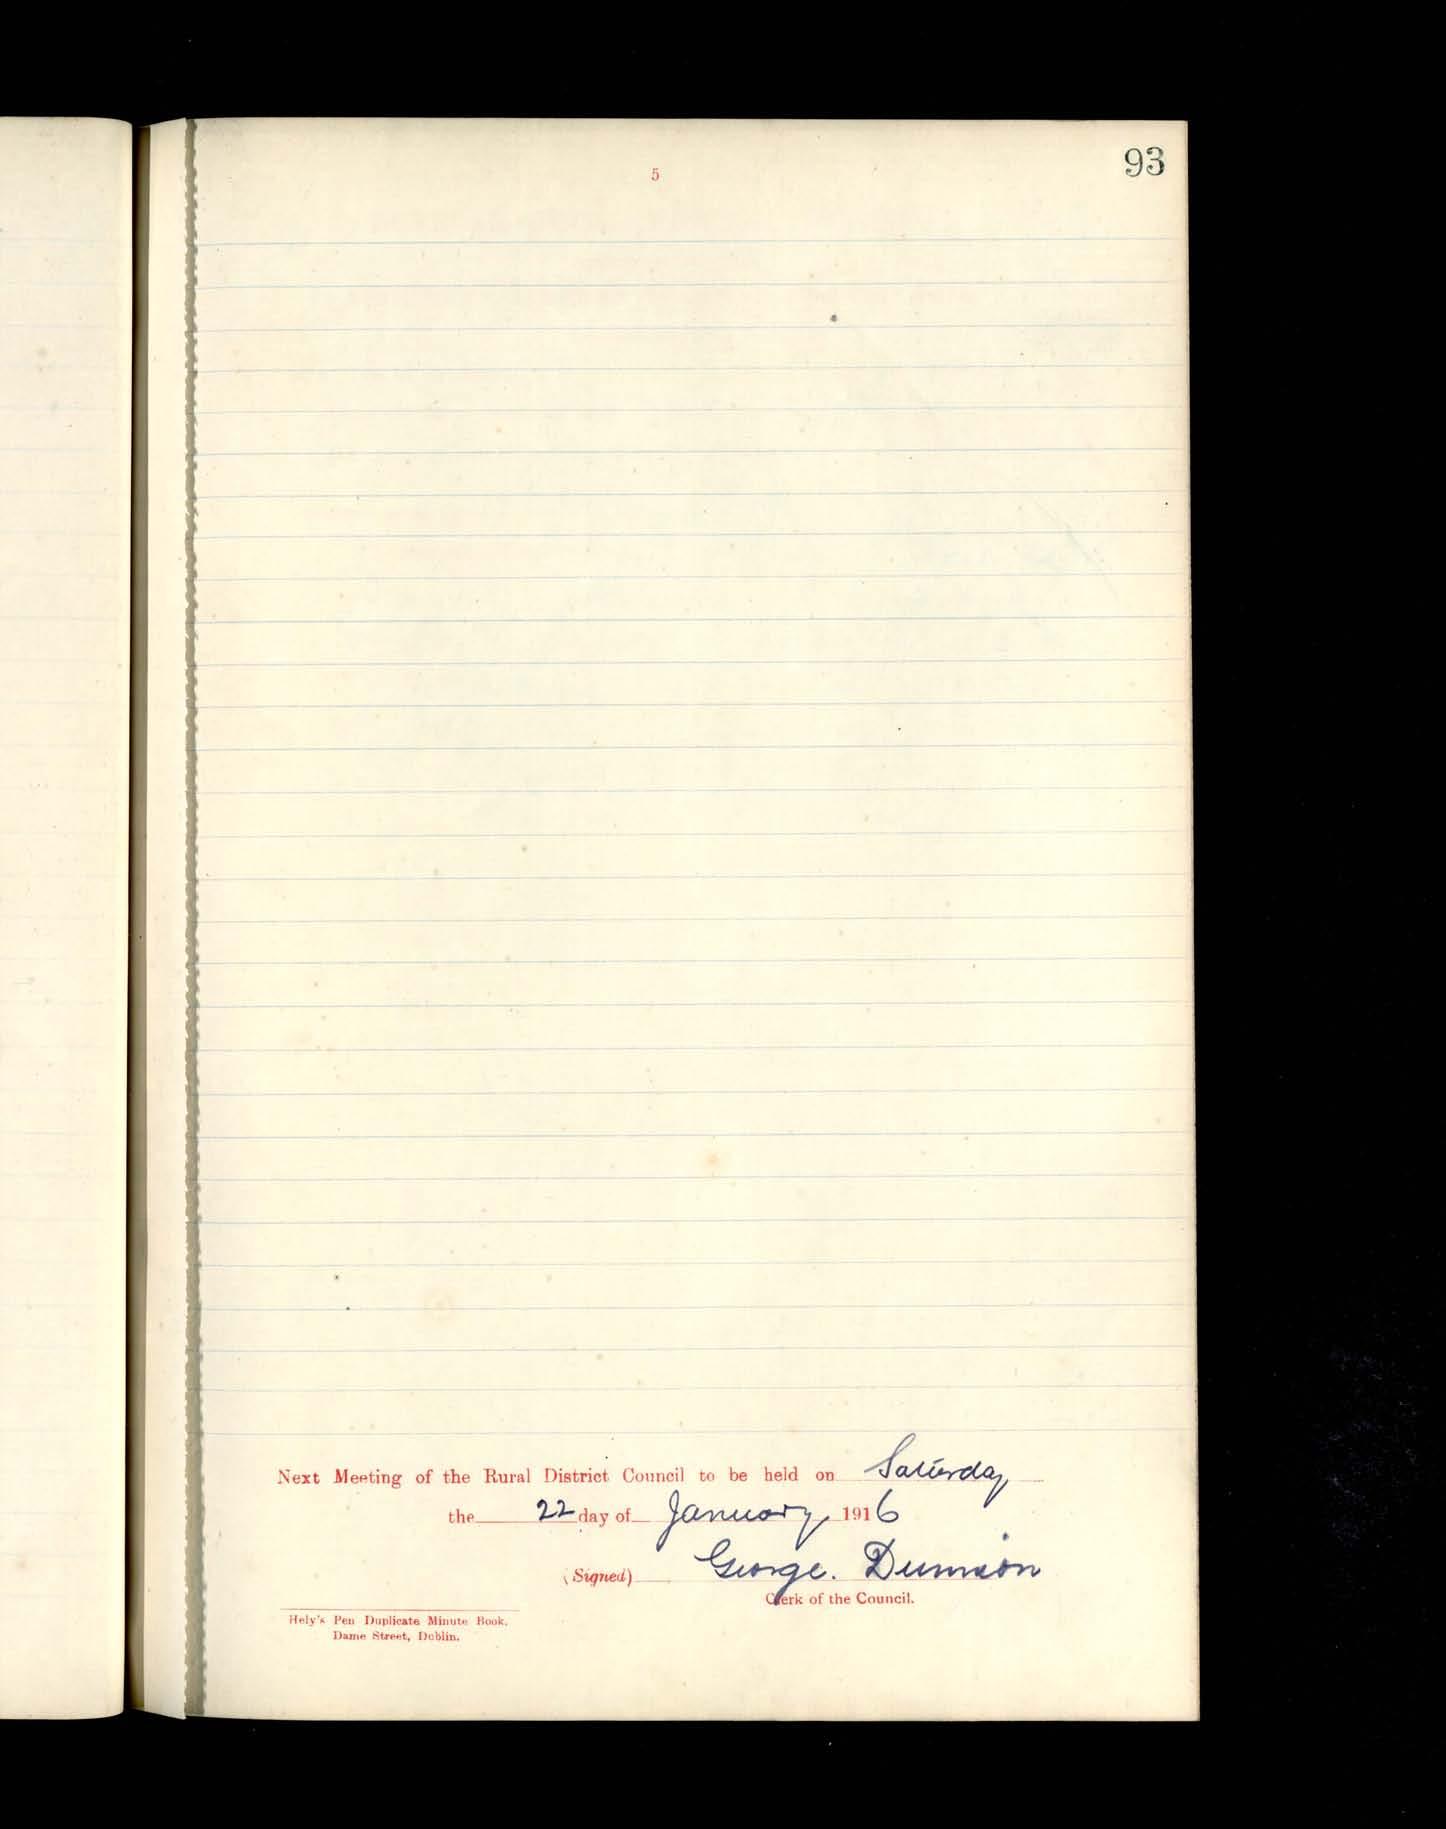 93
5
Next Meeting of the Rural District Council to be held on Saturday
the 22 day of January 1916
(Signed) George.
Clerk of the Council.
Hely's Pen Duplicate Minute Book.
Dame Street, Dublin.